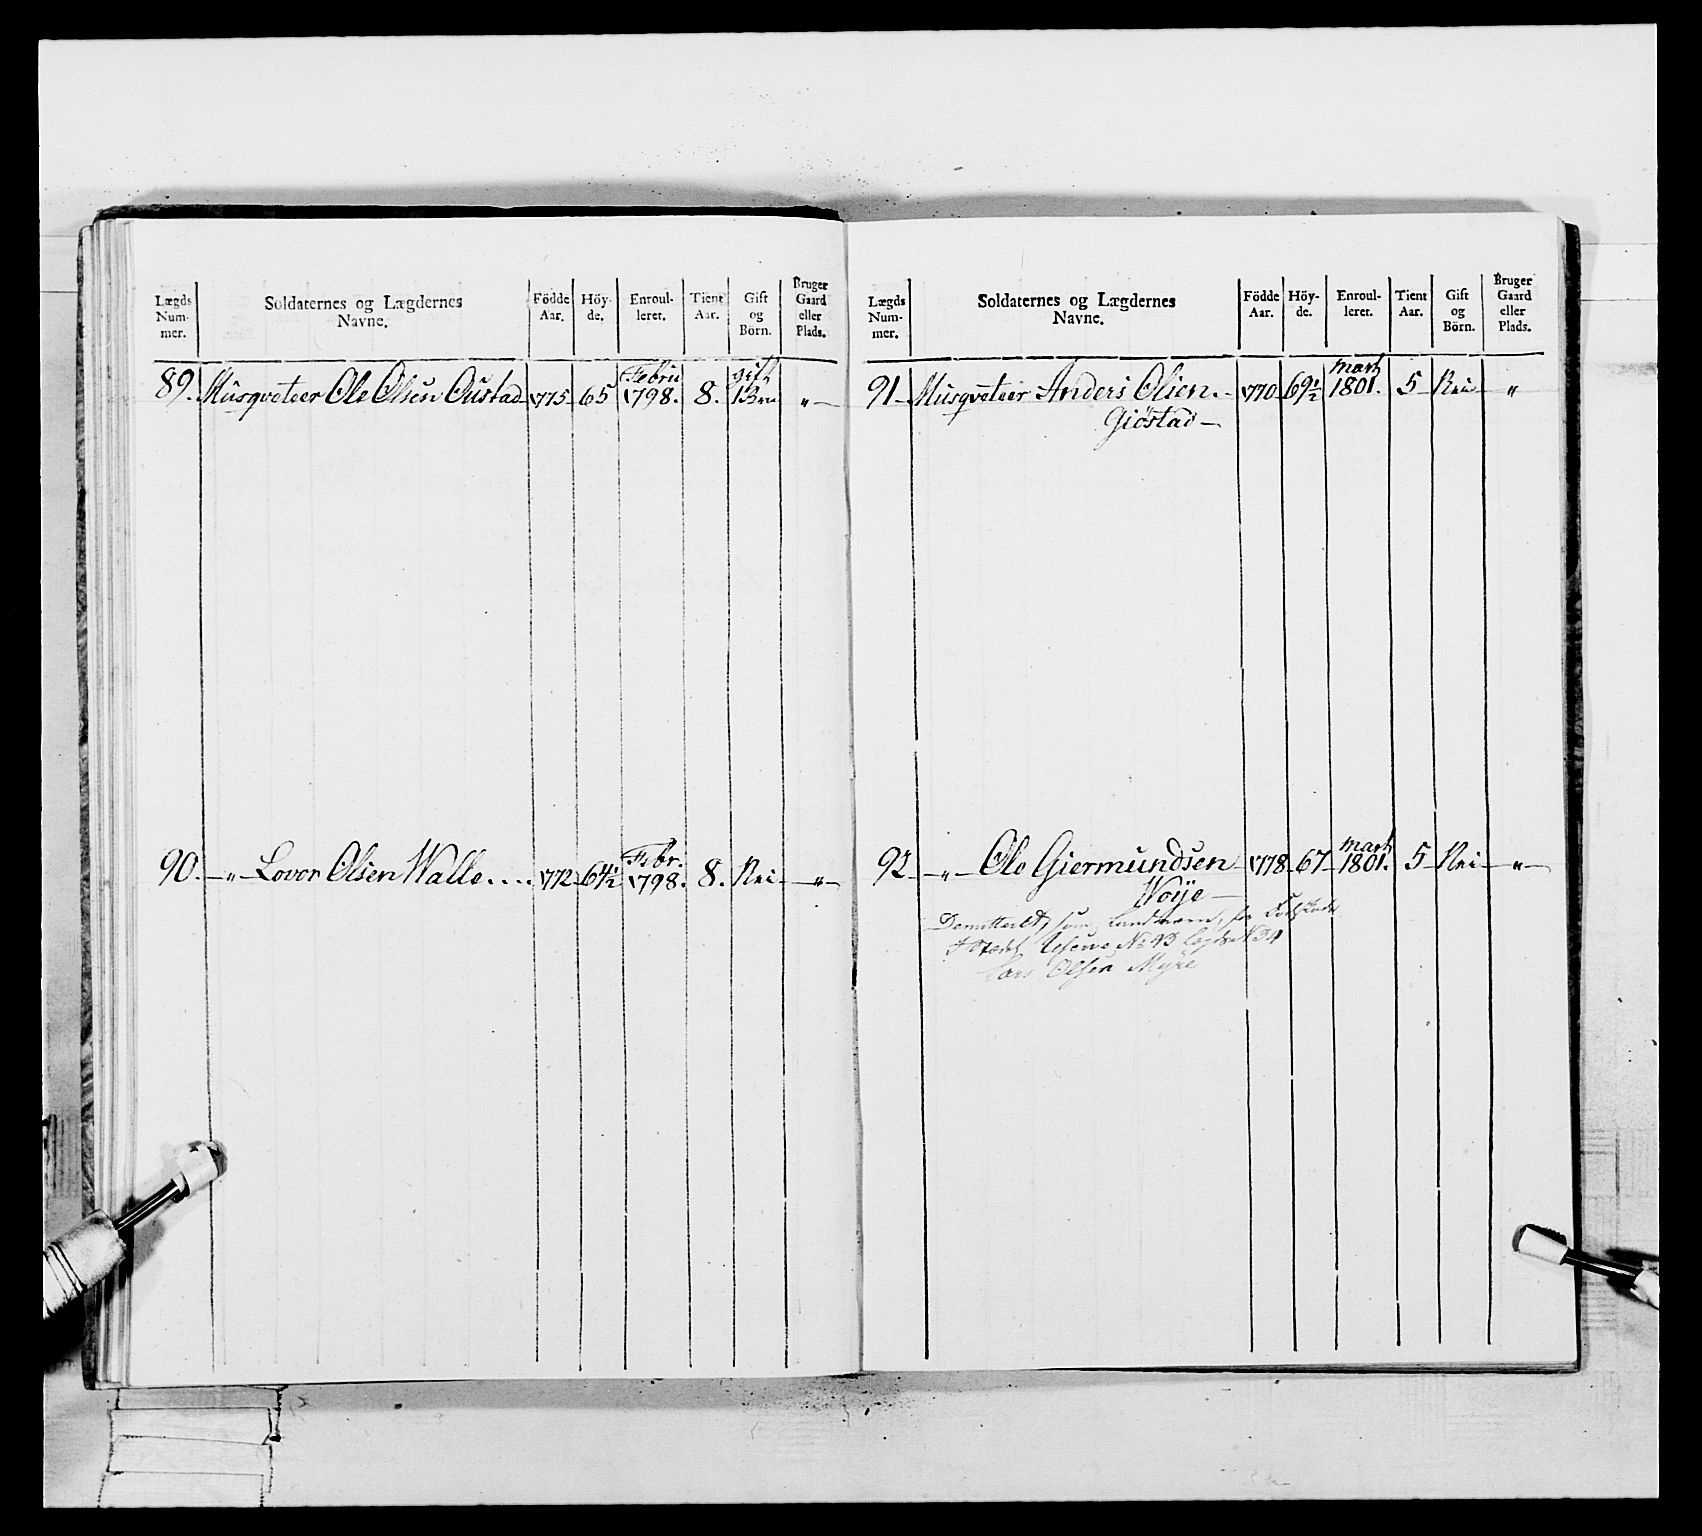 Lægds Num- mer. Soldaternes og Lægdernes Navne. Födde Aar. Höy- de. Enroul- leret. Tient Aar. Gift og Börn. Bruger Gaard eller Plads.
89. Musqveteer Ole Olsen Oustad 1775 65 Febru 1798. 8. gift 1 Brn „
90. „ Lovor Olsen Walle.... 1772 64½ Febr. 1798. 8. Nei „
Lægds Num- mer. Soldaternes og Lægdernes Navne. Födde Aar. Höy- de. Enroul- leret. Tient Aar. Gift og Börn. Bruger Gaard eller Plads.
91 Musqveteer Anders Olsen. 1770 69½ Mart 1801. 5 Nei „
Giöstad
92 „ Ole Giermundsen 1778 67 Mart 1801. 5 Nei „
Woije
Demitteret, som Landværn,
Stedet Reserve No 43 Lægds No 34
Lars Olsen Myre